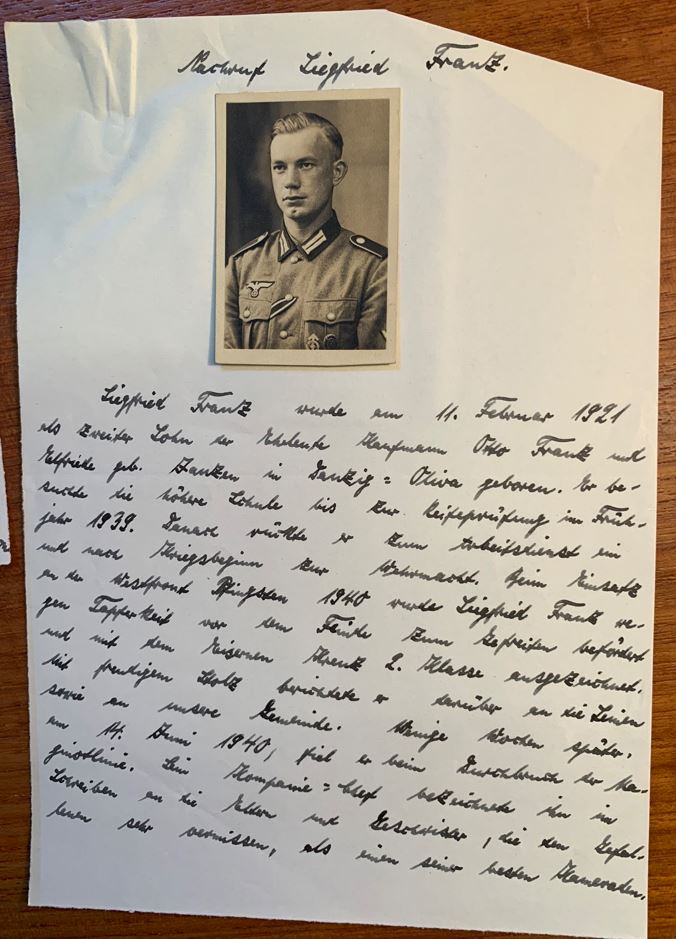 Nachruf Siegfried Frantz.
Siegfried Frantz wurde am 11. Februar 1921
als zweiter Sohn der Eheleute Kaufmann Otto Frantz und
Elfriede geb. Janzen in Danzig = Oliva geboren. Er be-
suchte die höhere Schule bis zur Reifeprüfung im Früh-
jahr 1939. Danach rückte er zum Arbeitsdienst ein
und nach Kriegsbeginn zur Wehrmacht. Beim Einsatz
an der Westfront Pfingsten 1940 wurde Siegfried Frantz we-
gen Tapferkeit vor dem Feinde zum Gefreiten befördert
und mit dem Eisernen Kreuz 2. Klasse ausgezeichnet.
Mit freudigem Stolz berichtete er darüber an die Seinen
sowie an unsere Gemeinde. Wenige Wochen später,
am 14. Juni 1940, fiel er beim Durchbruch der Ma-
ginotlinie. Sein Kompanie = Chef bezeichnete ihn im
Schreiben an die Eltern und Geschwister, die den Gefal-
lenen sehr vermissen, als einen seiner besten Kameraden.